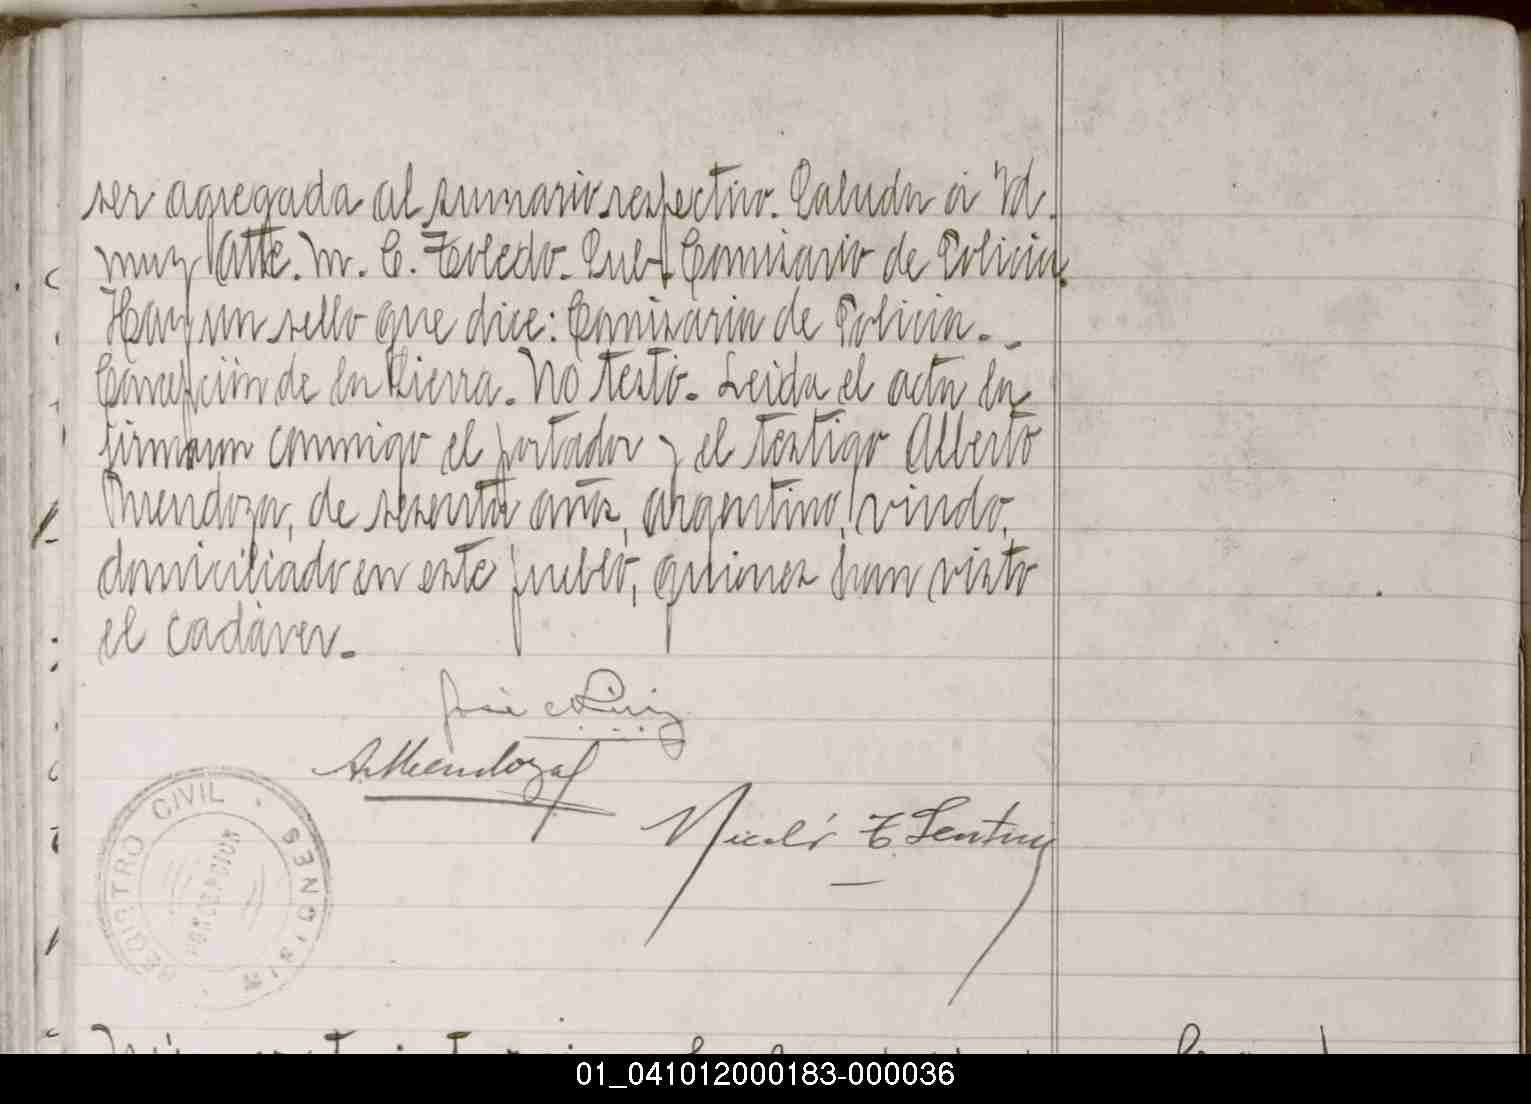 ser agregada al sumario respectivo. Saluda á Vd.
muy Atte. M. C. Toledo. Sub-Comisario de Policia.
Hay un sello que dice: Comisaria de Policia.-
Concepción de la Sierra. No testó. Leida el acta, la
firmaron conmigo el portador y el testigo Alberto
Mendoza, de sesenta años, argentino, viudo,
domiciliado en este pueblo, quienes han visto
el cadáver.-
José Ruiz
A. Mendoza
Nicolás T.
REGISTRO CIVIL
CONCEPCION
MISIONES
01_041012000183-000036